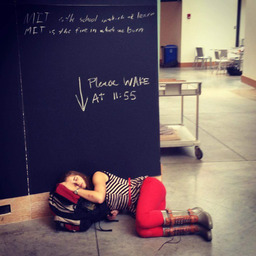 MIT is the school in which we learn
MIT is the fire in which we burn
Please WAKE
AT 11:55